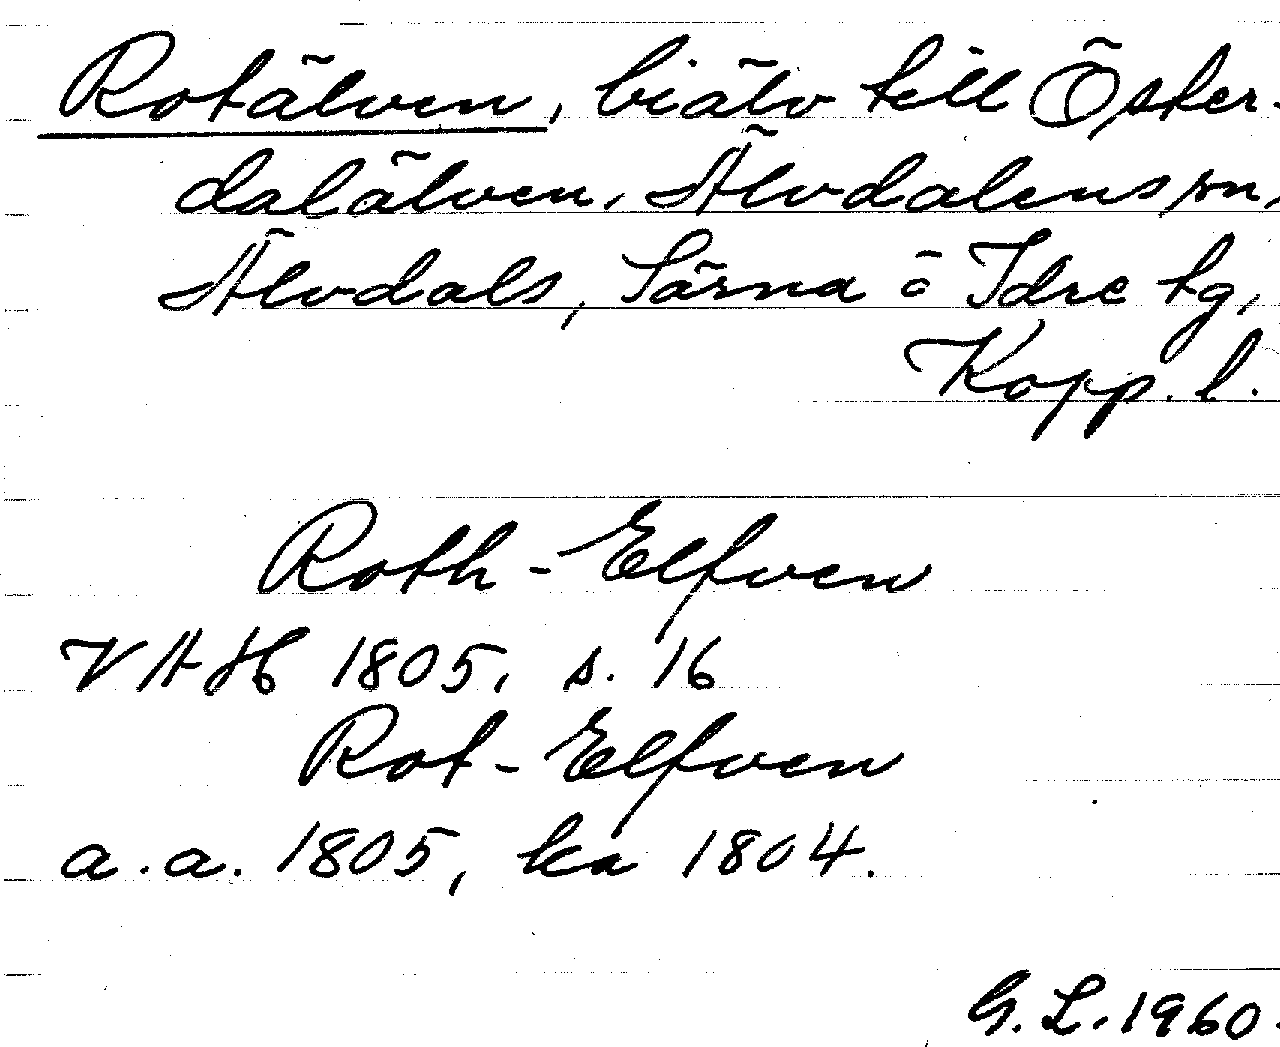 Rotälven, biälv till Öster-
dalälven, Älvdalens sn,
Älvdals, Särna o Idre tg,
Kopp. l.
Roth-Elfven
VAH 1805, s. 16
Rot-Elfven
a.a. 1805, ka 1804.
G. L. 1960.